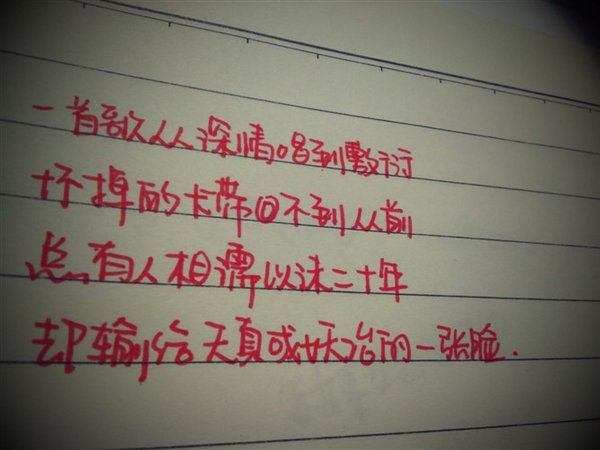 一首歌从深情唱到敷衍
坏掉的卡带回不到从前
总有人相濡以沫二十年
却输给天真或妖冶的一张脸.